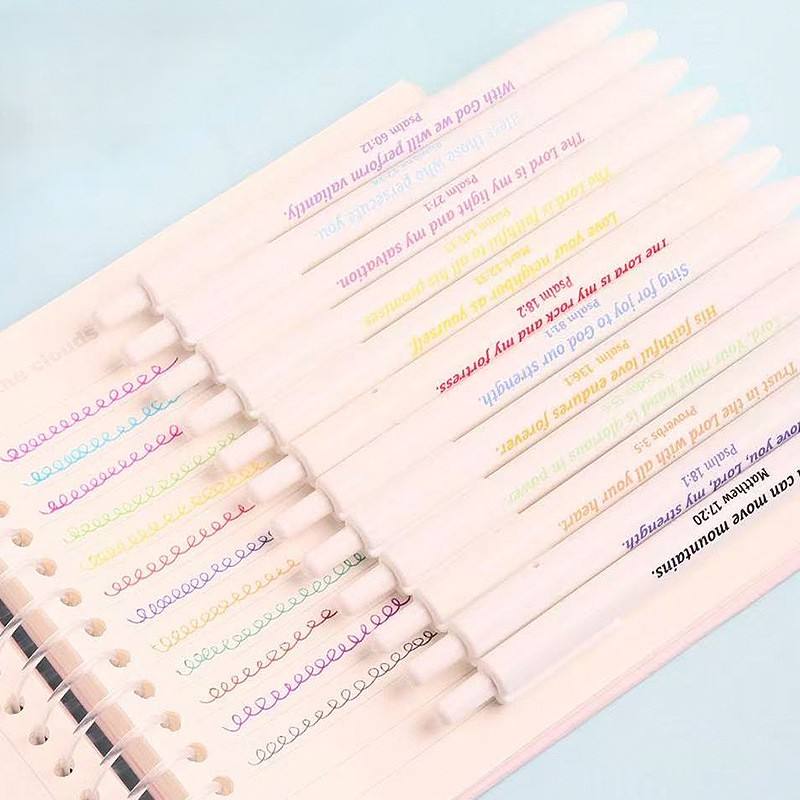 With God we will perform valiantly.
Psalm 60:12
Bless those who persecute you.
The Lord is my light and my salvation.
Psalm 27:1
The Lord is faithful to all his promises
Psalm 145:13
Love your neighbor as yourself
Mark 12:31
The Lord is my rock and my fortress.
Psalm 18:2
Sing for joy to God our strength.
Psalm 81:1
His faithful love endures forever.
Psalm 136:1
Lord, Your right hand is glorious in power.
Trust in the Lord with all your heart.
Proverbs 3:5
love you, Lord, my strength.
Psalm 18:1
I can move mountains.
Matthew 17:20
the clouds